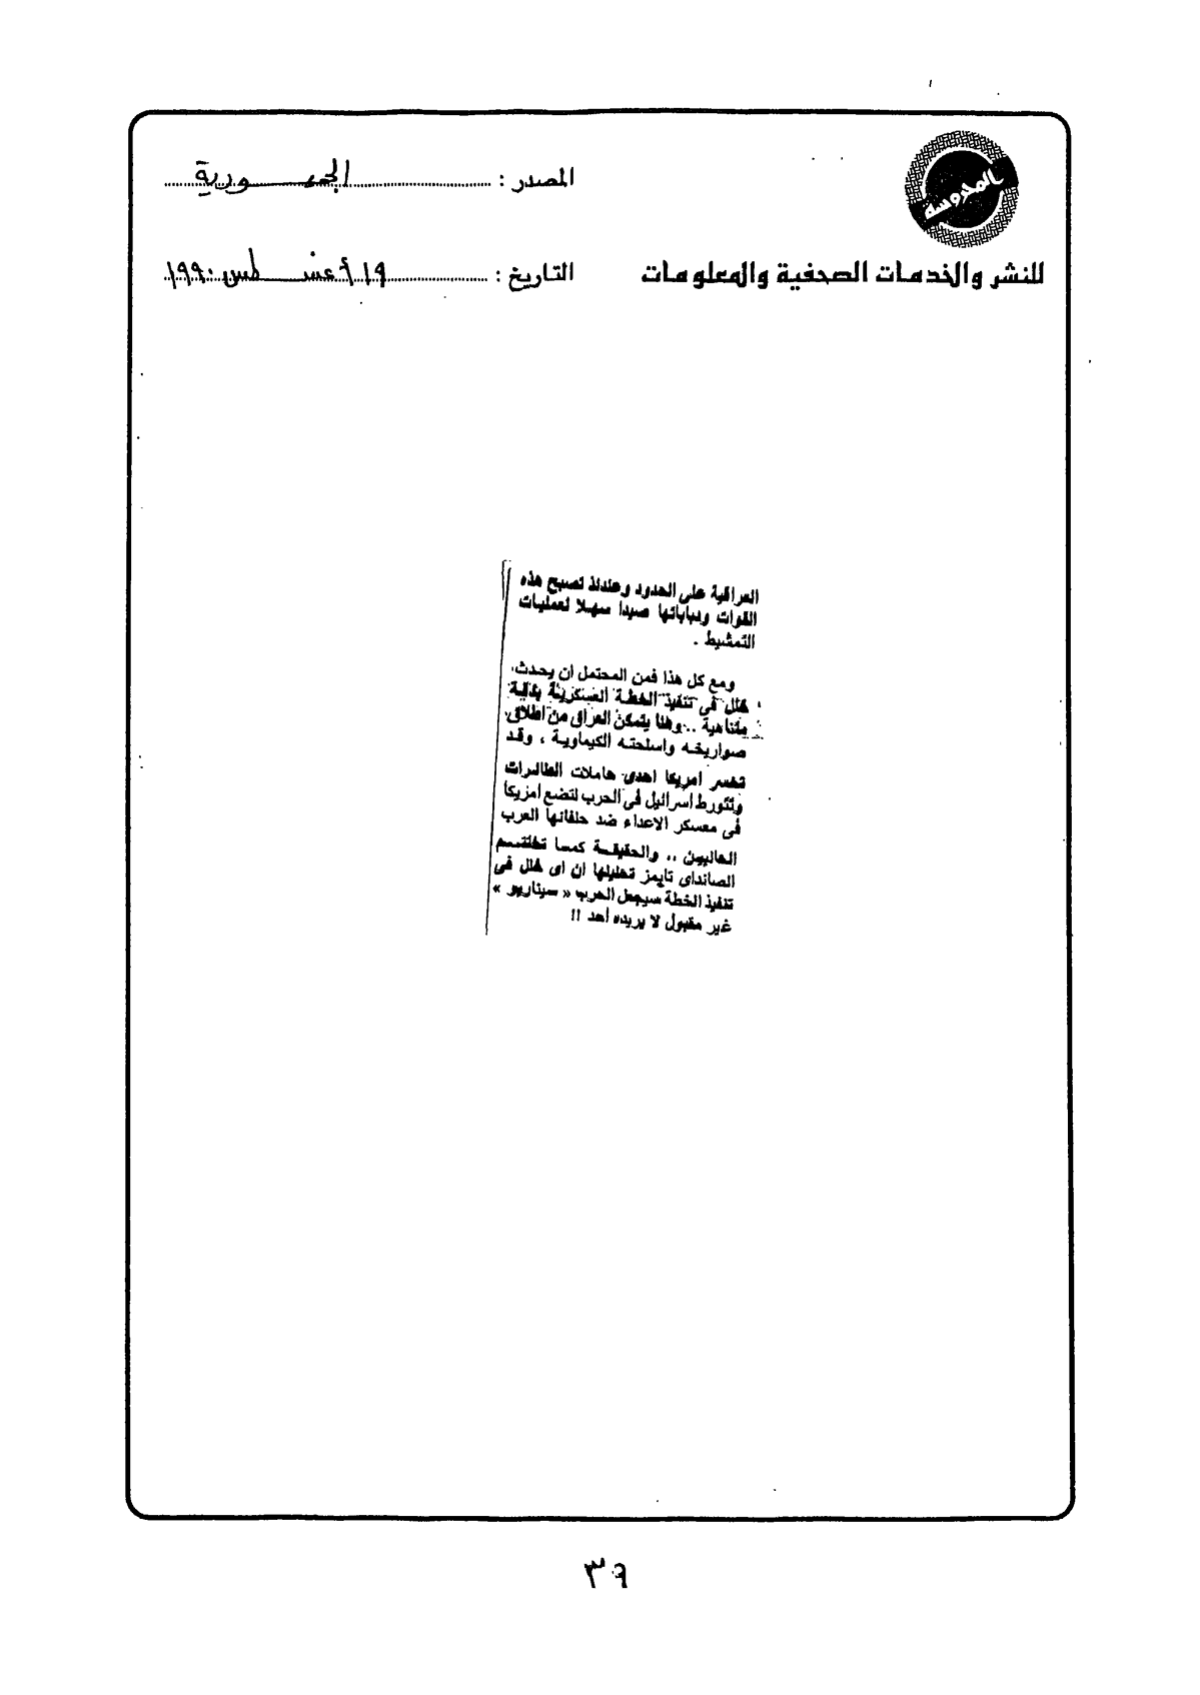 المحروسة
للنشر والخدمات الصحفية والمعلومات
المصدر : الجمهورية
التاريخ : ١٩ أغسطس ١٩٩٠
العراقية على الحدود وعندئذ تصبح هذه
القوات ودباباتها صيدا سهلا لعمليات
التمشيط .
ومع كل هذا فمن المحتمل ان يحدث
خلل فى تنفيذ الخطة العسكرية بدقة
متناهية .. وهنا يتمكن العراق من اطلاق
صواريخه واسلحته الكيماوية ، وقد
تخسر امريكا احدى حاملات الطائرات
وتتورط اسرائيل فى الحرب لتضع امريكا
فى معسكر الاعداء ضد حلفائها العرب
الحاليين .. والحقيقة كما تختتم
الصنداى تايمز تحليلها ان اى خلل فى
تنفيذ الخطة سيجعل الحرب « سيناريو »
غير مقبول لا يريده أحد !!
٣٩